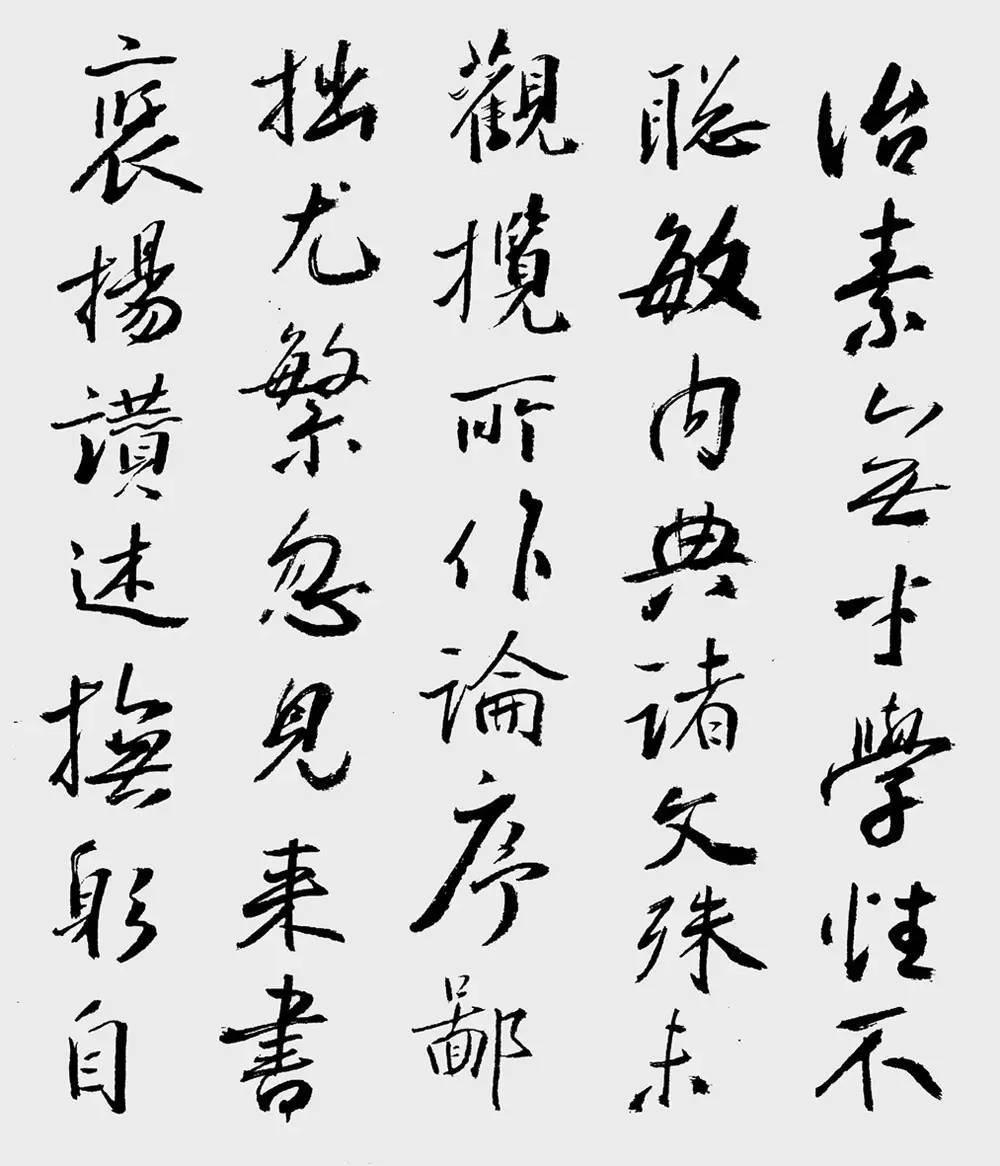 治素無才學性不
聡敏内典諸文殊未
觀攬所作論序鄙
拙尤繁忽見来書
褒揚讃述撫躬自